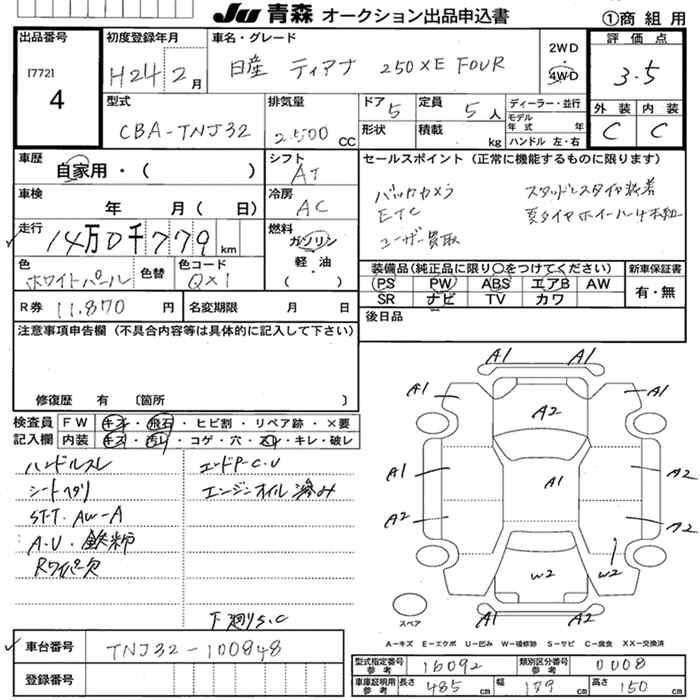 JU 青森 オークション出品申込書 ①商組用
出品番号 初度登録年月 車名・グレード 2WD 評価点
[772] H24年2月 日産 ティアナ 250XE FOUR 4WD 3.5
4
型式 排気量 ドア 定員 ディーラー・並行 外装 内装
CBA-TNJ32 2,500 CC 5 5人 モデル年式 年 C C
形状 積載 kg ハンドル 左・右
車歴 シフト セールスポイント(正常に機能するものに限ります)
自家用・( ) AT
バックカメラ スタッドレスタイヤ装着
車検 冷房
年 月( 日) AC ETC 夏タイヤホイール4本
走行 燃料 ユーザー買取
14万0千779km ガソリン
軽・油
( )
色 色替 色コード 装備品(純正品に限り○をつけてください) 新車保証書
ホワイトパール QX1 PS PW ABS エアB AW 有・無
SR ナビ TV カワ
R券 11,870円 名変期限 月 日 後日品
注意事項申告欄(不具合内容等は具体的に記入して下さい)
修復歴 有 〔箇所 〕
検査員 FW キズ・飛石・ヒビ割・リペア跡・×要
記入欄 内装 キズ・汚れ・コゲ・穴・スレ・キレ・破レ
ハンドルスレ
シートヘタリ エンジンオイル滲み
STT.AW-A
A.U・鉄粉
Rワイパー欠
下廻りS.C
車台番号 TNJ32-100848
登録番号
A1 A1
A1 A2 A1
A1 A1 A2
A2 A2
W2 W2
A1 A1
スペア
A-キズ E-エクボ U-凹み W-補修跡 S-サビ C-腐食 XX-交換済
型式指定番号 参考 16092 類別区分番号 参考 0008
車庫証明用 参考 長さ 485cm 幅 179cm 高さ 150cm